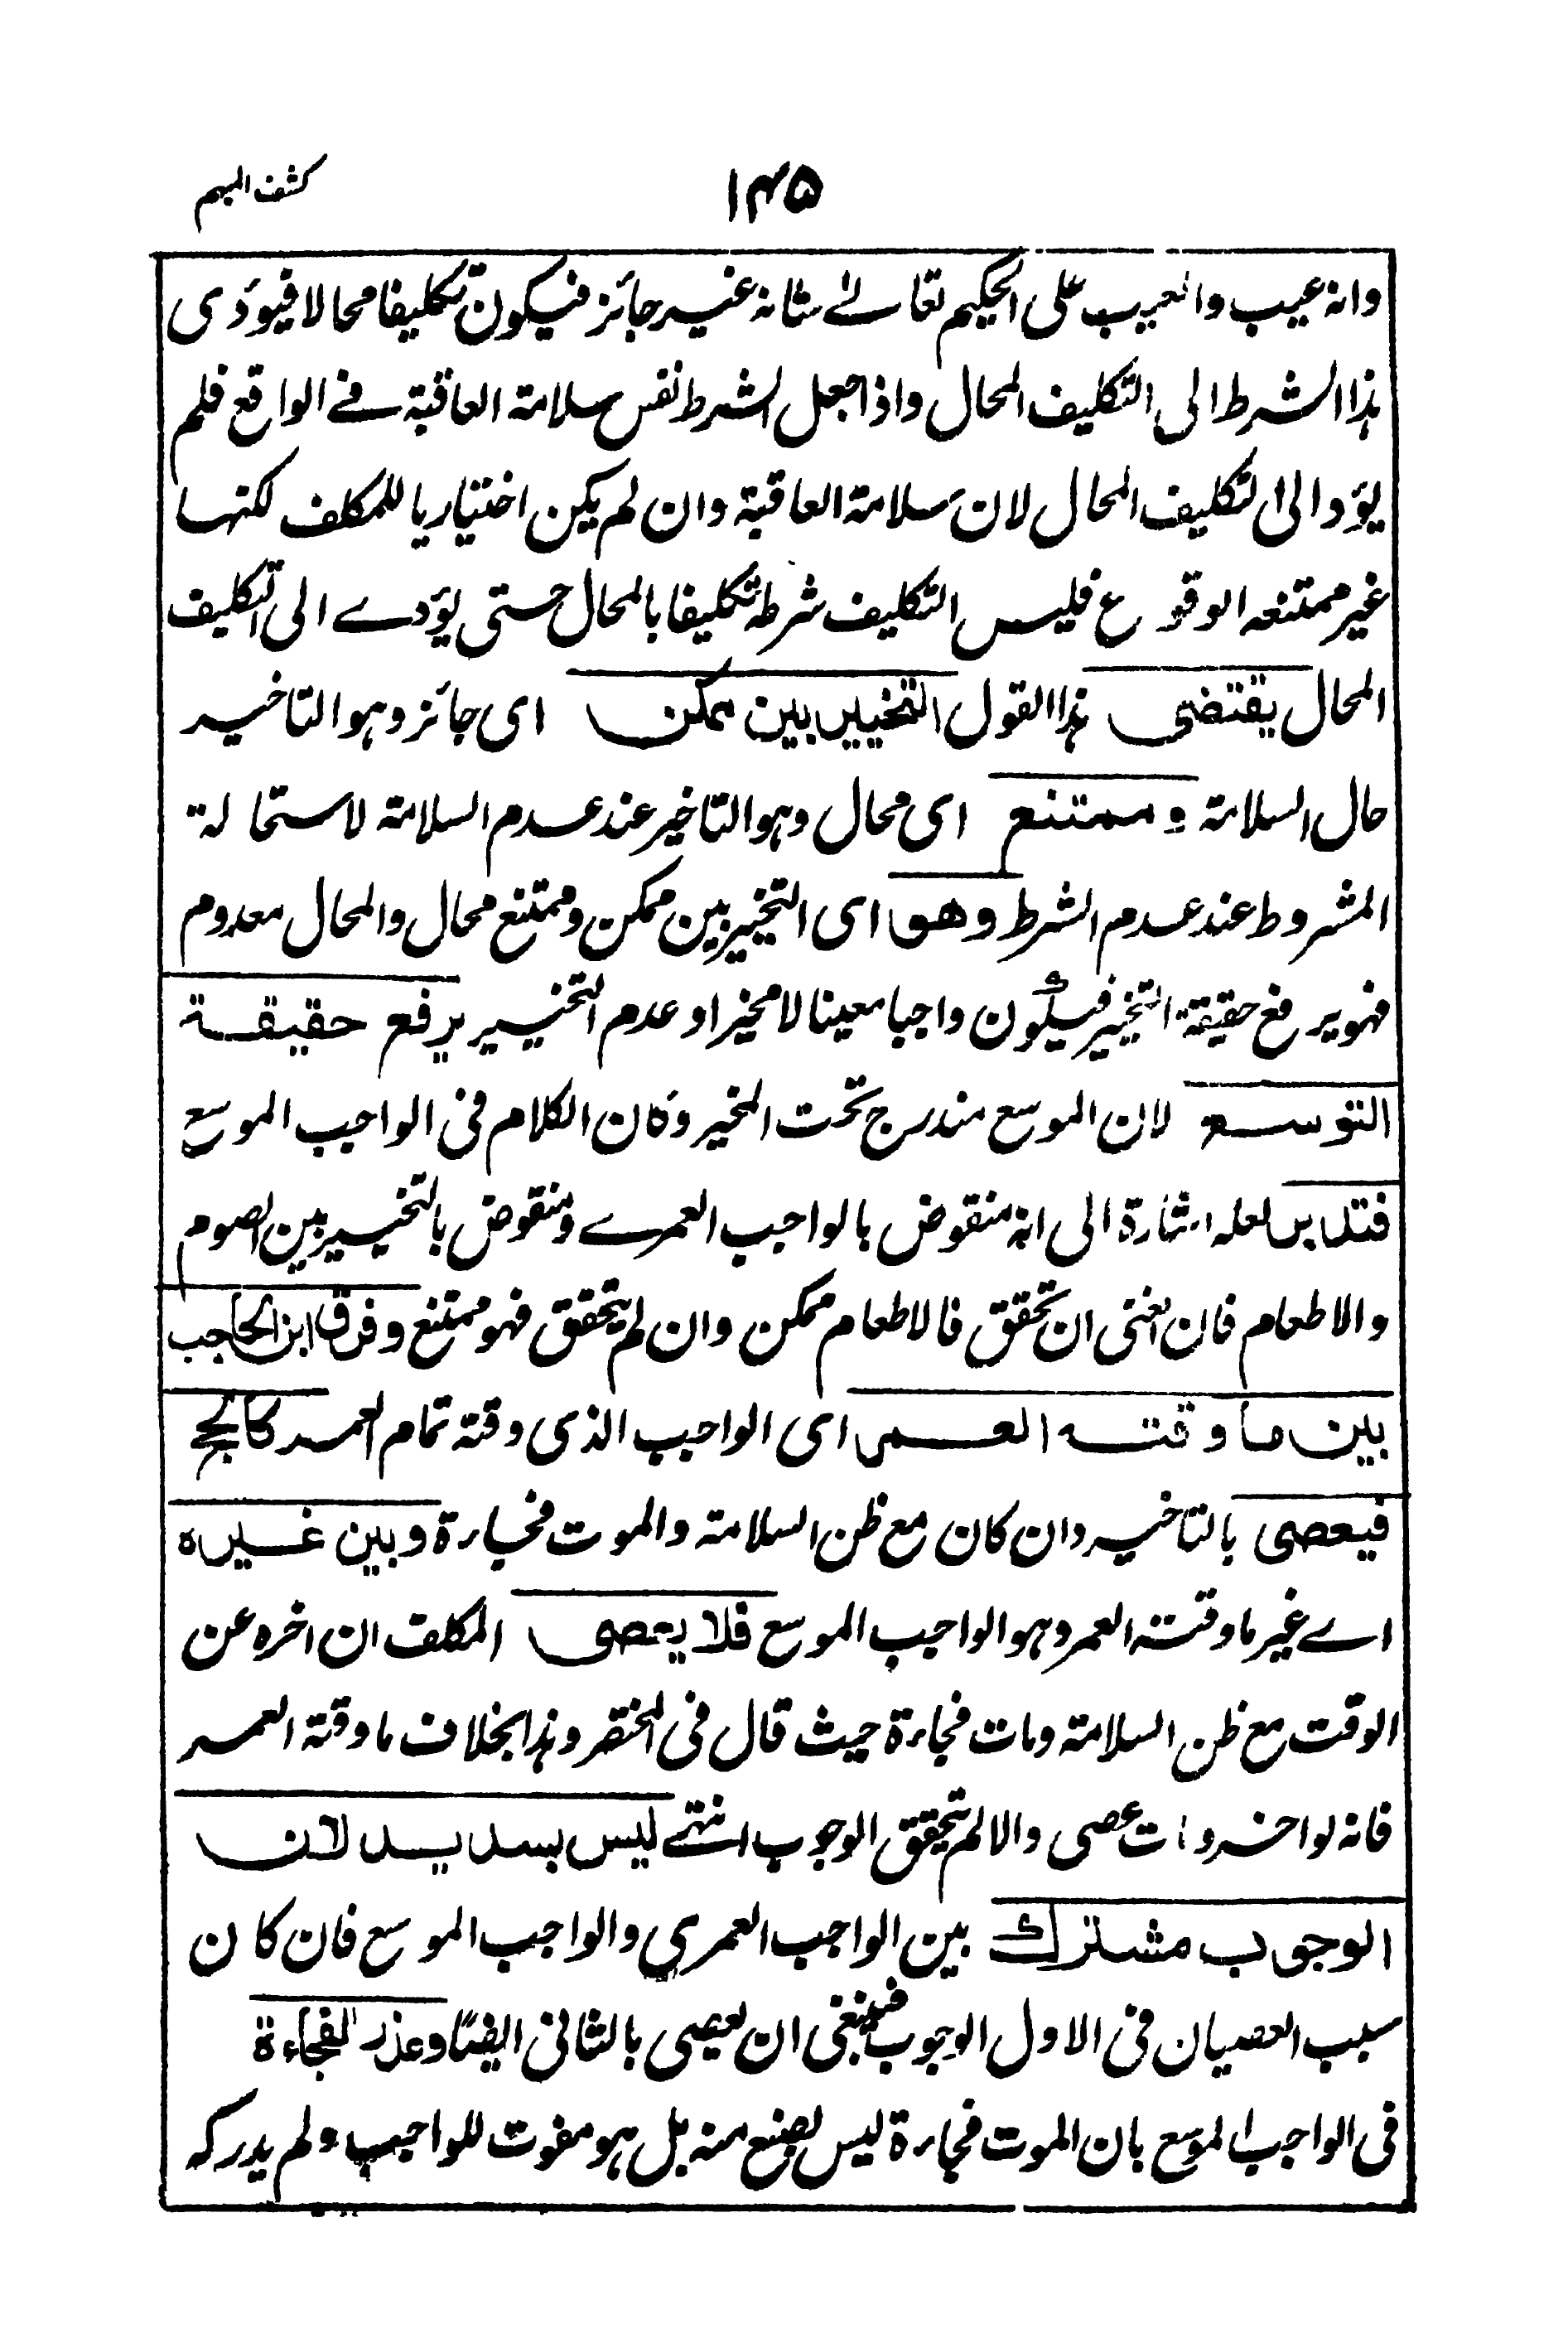 كشف المبهم
۱۴۵
وانه عيب والعيب على الحكيم تعالے شانه غير جائز فيكون تكليفا محالا فيؤدى
هذا الشرط الى التكليف المحال واذا جعل الشرط نفس سلامة العاقبة فے الواقع فلم
يؤد الى التكليف المحال لان سلامة العاقبة وان لم يكن اختياريا للمكلف لكنها
غير ممتنعه الوقوع فليس التكليف شرطه تكليفا بالمحال حتى يؤدے الى التكليف
المحال يقتضى هذا القول التخيير بين ممكن اى جائز وهو التاخير
حال السلامة وممتنع اى محال وهو التاخير عند عدم السلامة لاستحالة
المشروط عند عدم الشرط وهو اى التخيير بين ممكن وممتنع محال والمحال معدوم
فهو يرفع حقيقة التخيير فيكون واجبا معينا لا مخيرا وعدم التخيير يرفع حقيقة
التوسع لان الموسع مندرج تحت المخير وكان الكلام فى الواجب الموسع
فتدبر لعله اشارة الى انه منقوض بالواجب العمرے ومنقوض بالتخيير بين الصوم
والاطعام فان الغنى ان تحقق فالاطعام ممكن وان لم يتحقق فهو ممتنع وفرق ابن الحاجب
بين ما وقته العمر اى الواجب الذى وقته تمام العمر كالحج
فيعصى بالتاخير وان كان مع ظن السلامة والموت فجاءة وبين غيره
اے غير ما وقته العمر وهو الواجب الموسع فلا يعصى المكلف ان اخره عن
الوقت مع ظن السلامة ومات فجاءة حيث قال فى المختصر وهذا بخلاف ما وقته العمر
فانه لو اخر ومات عصى والا لم يتحقق الوجوب انتهے ليس بسديد لان
الوجوب مشترك بين الواجب العمري والواجب الموسع فان كان
سبب العصيان فى الاول الوجوب فينبغى ان يعصى بالثانى ايضا وعذر الفجاءة
فى الواجب الموسع بان الموت فجاءة ليس بصنع منه بل هو مفوت للواجب ولم يدركه